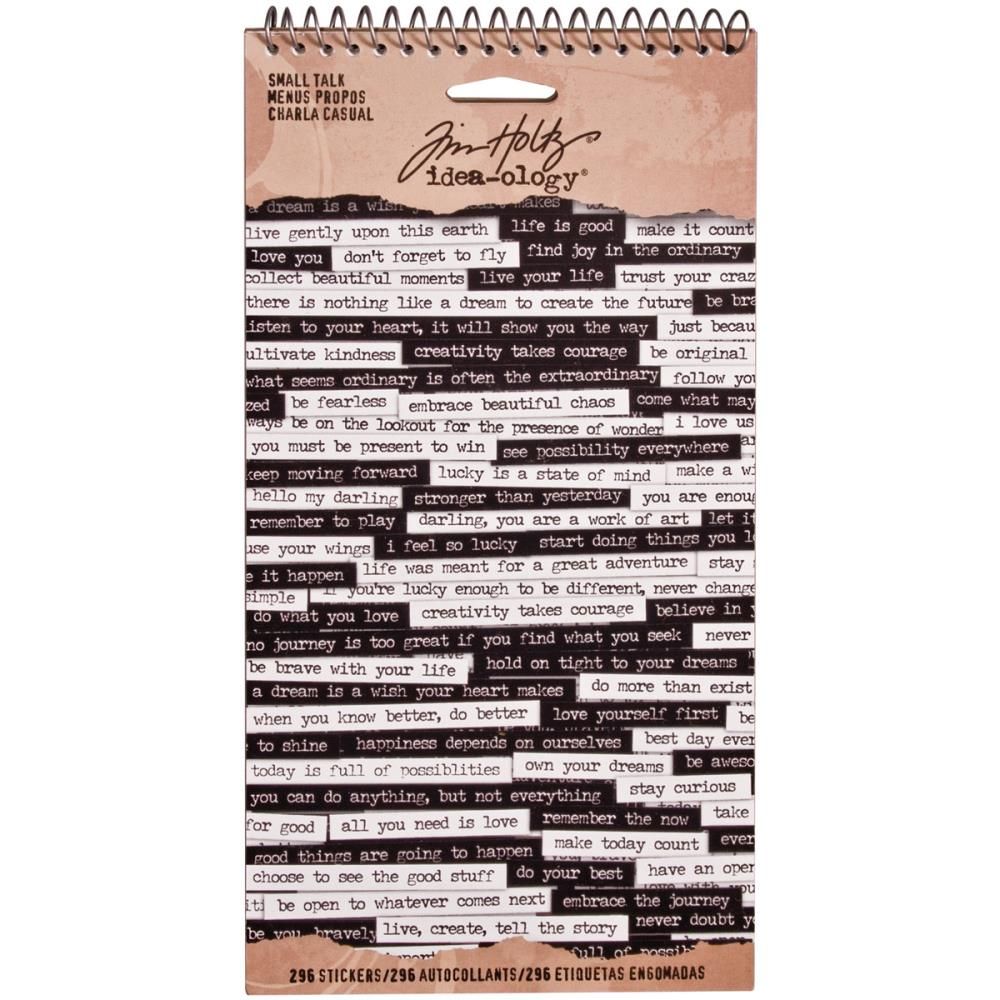 SMALL TALK
MENUS PROPOS
CHARLA CASUAL
Tim Holtz ®
idea-ology®
a dream is a wish heart makes
live gently upon this earth life is good make it count
love you don't forget to fly find joy in the ordinary
collect beautiful moments live your life trust your craz
there is nothing like a dream to create the future be bra
isten to your heart, it will show you the way just becau
ultivate kindness creativity takes courage be original
what seems ordinary is often the extraordinary follow you
zed be fearless embrace beautiful chaos come what may
ways be on the lookout for the presence of wonder i love us
you must be present to win see possibility everywhere
keep moving forward lucky is a state of mind make a wi
hello my darling stronger than yesterday you are enoug
remember to play darling, you are a work of art let it
use your wings i feel so lucky start doing things you l
e it happen life was meant for a great adventure stay
simple if you're lucky enough to be different, never change
do what you love creativity takes courage believe in y
no journey is too great if you find what you seek never
be brave with your life hold on tight to your dreams
a dream is a wish your heart makes do more than exist
when you know better, do better love yourself first be
to shine happiness depends on ourselves best day ever
today is full of possiblities own your dreams be aweso
you can do anything, but not everything stay curious
for good all you need is love remember the now take
good things are going to happen make today count ever
choose to see the good stuff do your best have an open
iti be open to whatever comes next embrace the journey
be you, bravely live, create, tell the story never doubt yo
full of possib
296 STICKERS/296 AUTOCOLLANTS/296 ETIQUETAS ENGOMADAS